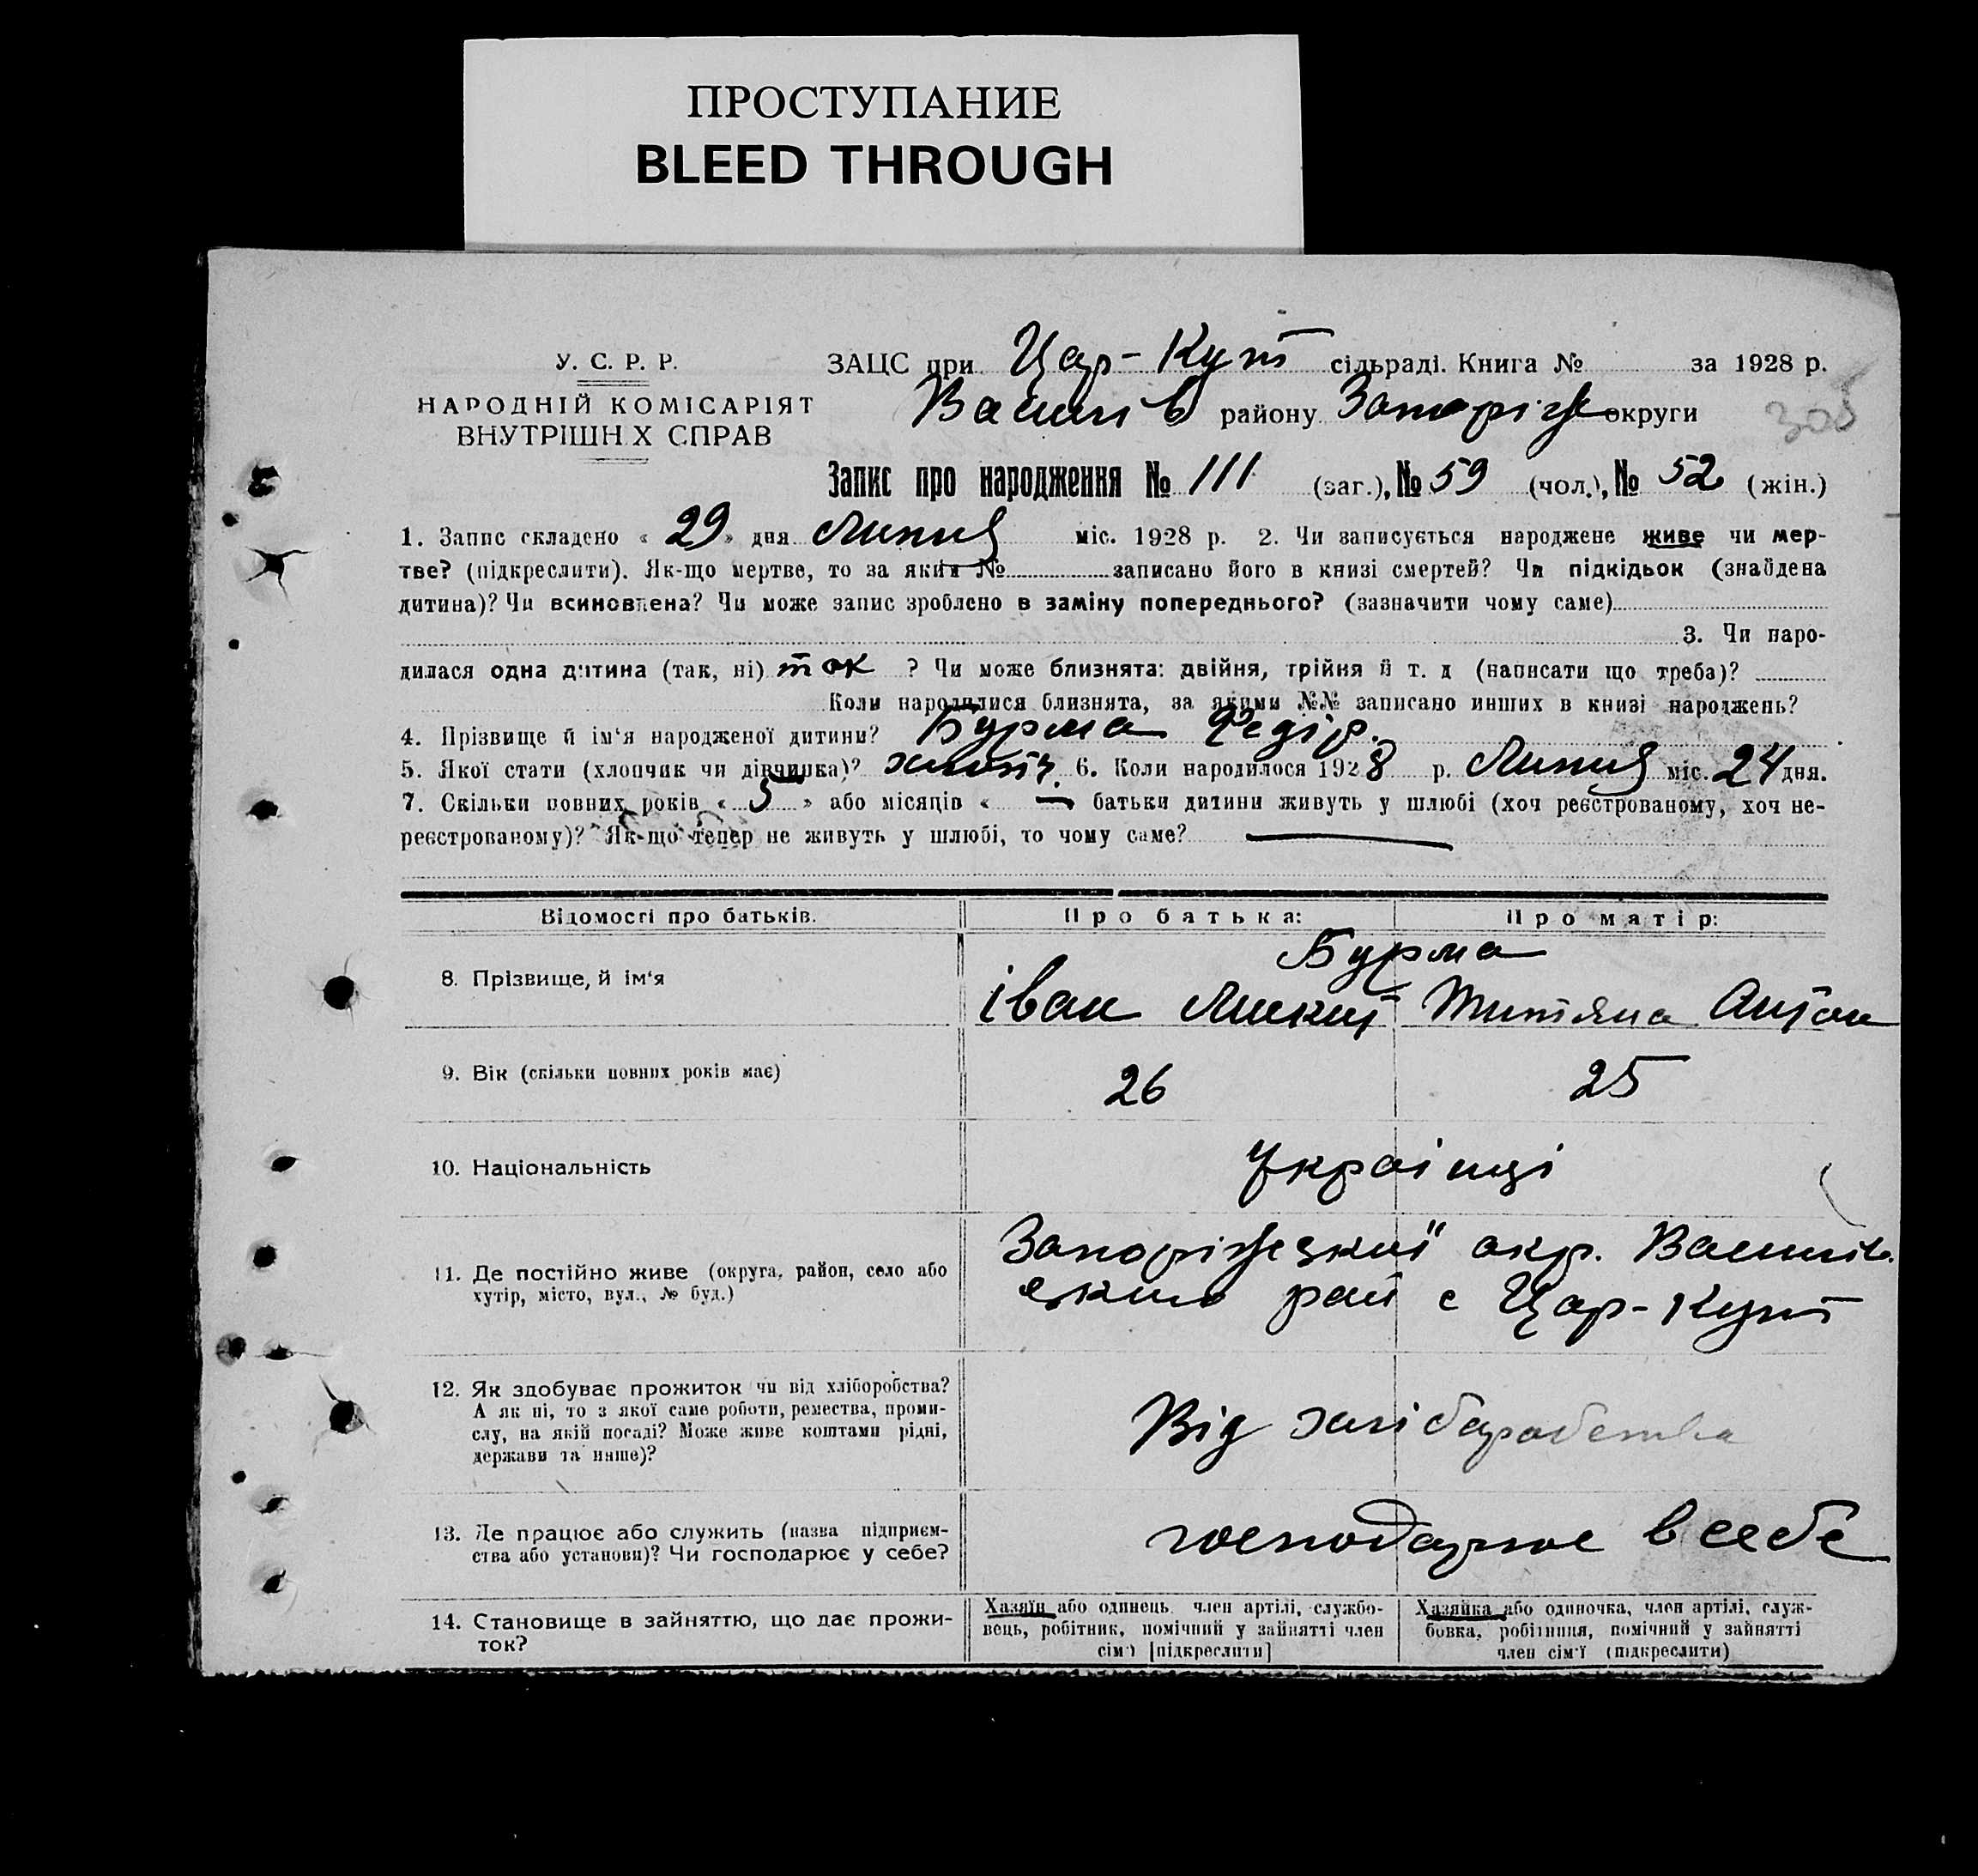 ПРОСТУПАНИЕ
BLEED THROUGH
У. С. Р. Р.
НАРОДНІЙ КОМІСАРІЯТ
ВНУТРІШН Х СПРАВ
ЗАЦС при Цар-Кут сільраді. Книга № за 1928 р.
Василів району Запоріж округи
305
Запис про народження № 111 (заг.), № 59 (чол.), № 52 (жін.)
1. Запис складено « 29 » дня Липня міс. 1928 р. 2. Чи записується народжене живе чи мер-
тве? (підкреслити). Як-що мертве, то за яким № записано його в книзі смертей? Чи підкідьок (знайдена
дитина)? Чи всиновлена? Чи може запис зроблено в заміну попереднього? (зазначити чому саме)
3. Чи наро-
дилася одна дитина (так, ні) так ? Чи може близнята: двійня, трійня й т. д (написати що треба)?
Коли народилися близнята, за якими №№ записано инших в книзі народжень?
4. Прізвище й ім'я народженої дитини? Бурма Федір.
5. Якої стати (хлопчик чи дівчинка)? хлопч. 6. Коли народилося 1928 р. Липня міс. 24 дня.
7. Скільки повних років « 5 » або місяців « — батьки дитини живуть у шлюбі (хоч реєстрованому, хоч не-
реєстрованому)? Як-що тепер не живуть у шлюбі, то чому саме? —
Відомості про батьків. Про батька: Про матір:
Бурма
8. Прізвище, й ім'я Іван Микит Титяна Антон
9. Вік (скільки повних років має) 26 25
10. Національність Українці
11. Де постійно живе (округа, район, село або
хутір, місто, вул., № буд.)
Запоріжецкий окр. Василів.
рай с Цар-Кут
12. Як здобуває прожиток чи від хліборобства?
А як ні, то з якої саме роботи, ремества, проми-
слу, на якій посаді? Може живе коштами рідні,
держави та инше)?
Від хлібаробства
13. Де працює або служить (назва підприєм-
ства або установи)? Чи господарює у себе?
господарює в себе
14. Становище в зайняттю, що дає прожи-
ток?
Хазяїн або одинець член артілі, службо-
вець, робітник, помічний у зайнятті член
сім'ї [підкреслити]
Хазяйка або одиночка, член артілі, служ-
бовка, робітниця, помічний у зайнятті
член сім'ї (підкреслити)